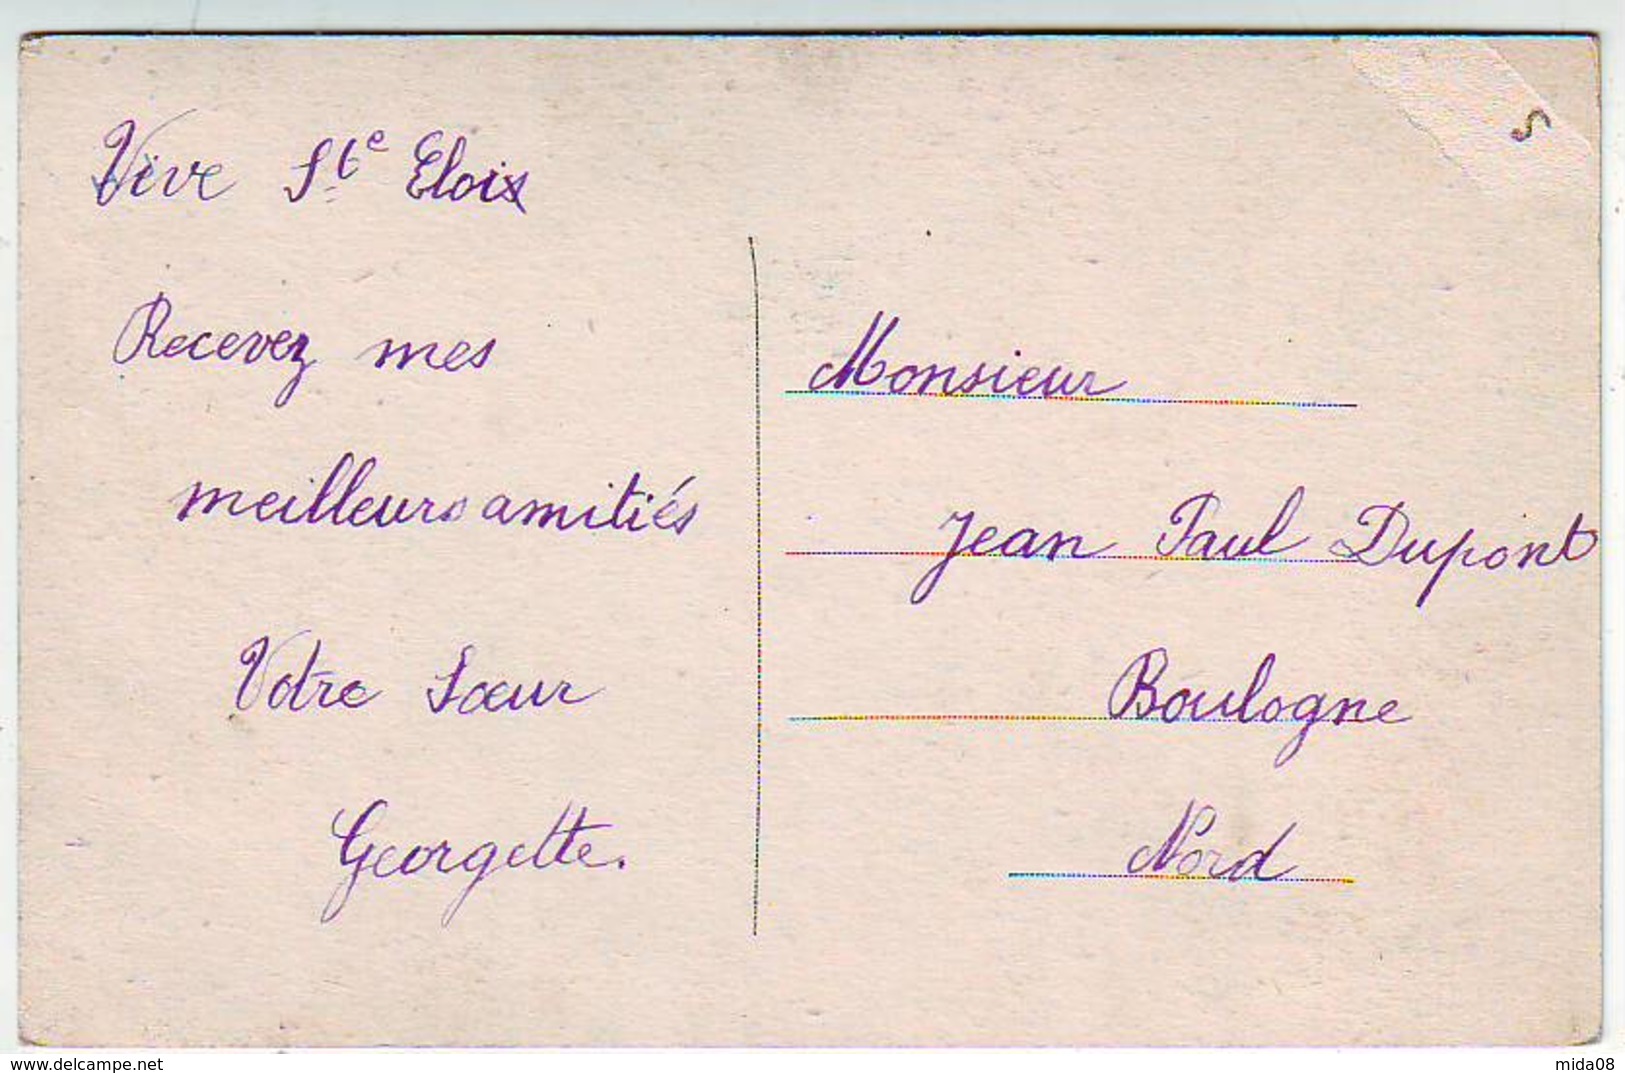 Vive Ste Eloix
Recevez mes
meilleurs amitiés
Votre Sœur
Georgette.
Monsieur
Jean Paul Dupont
Boulogne
Nord
S
www.delcampe.net
mida08